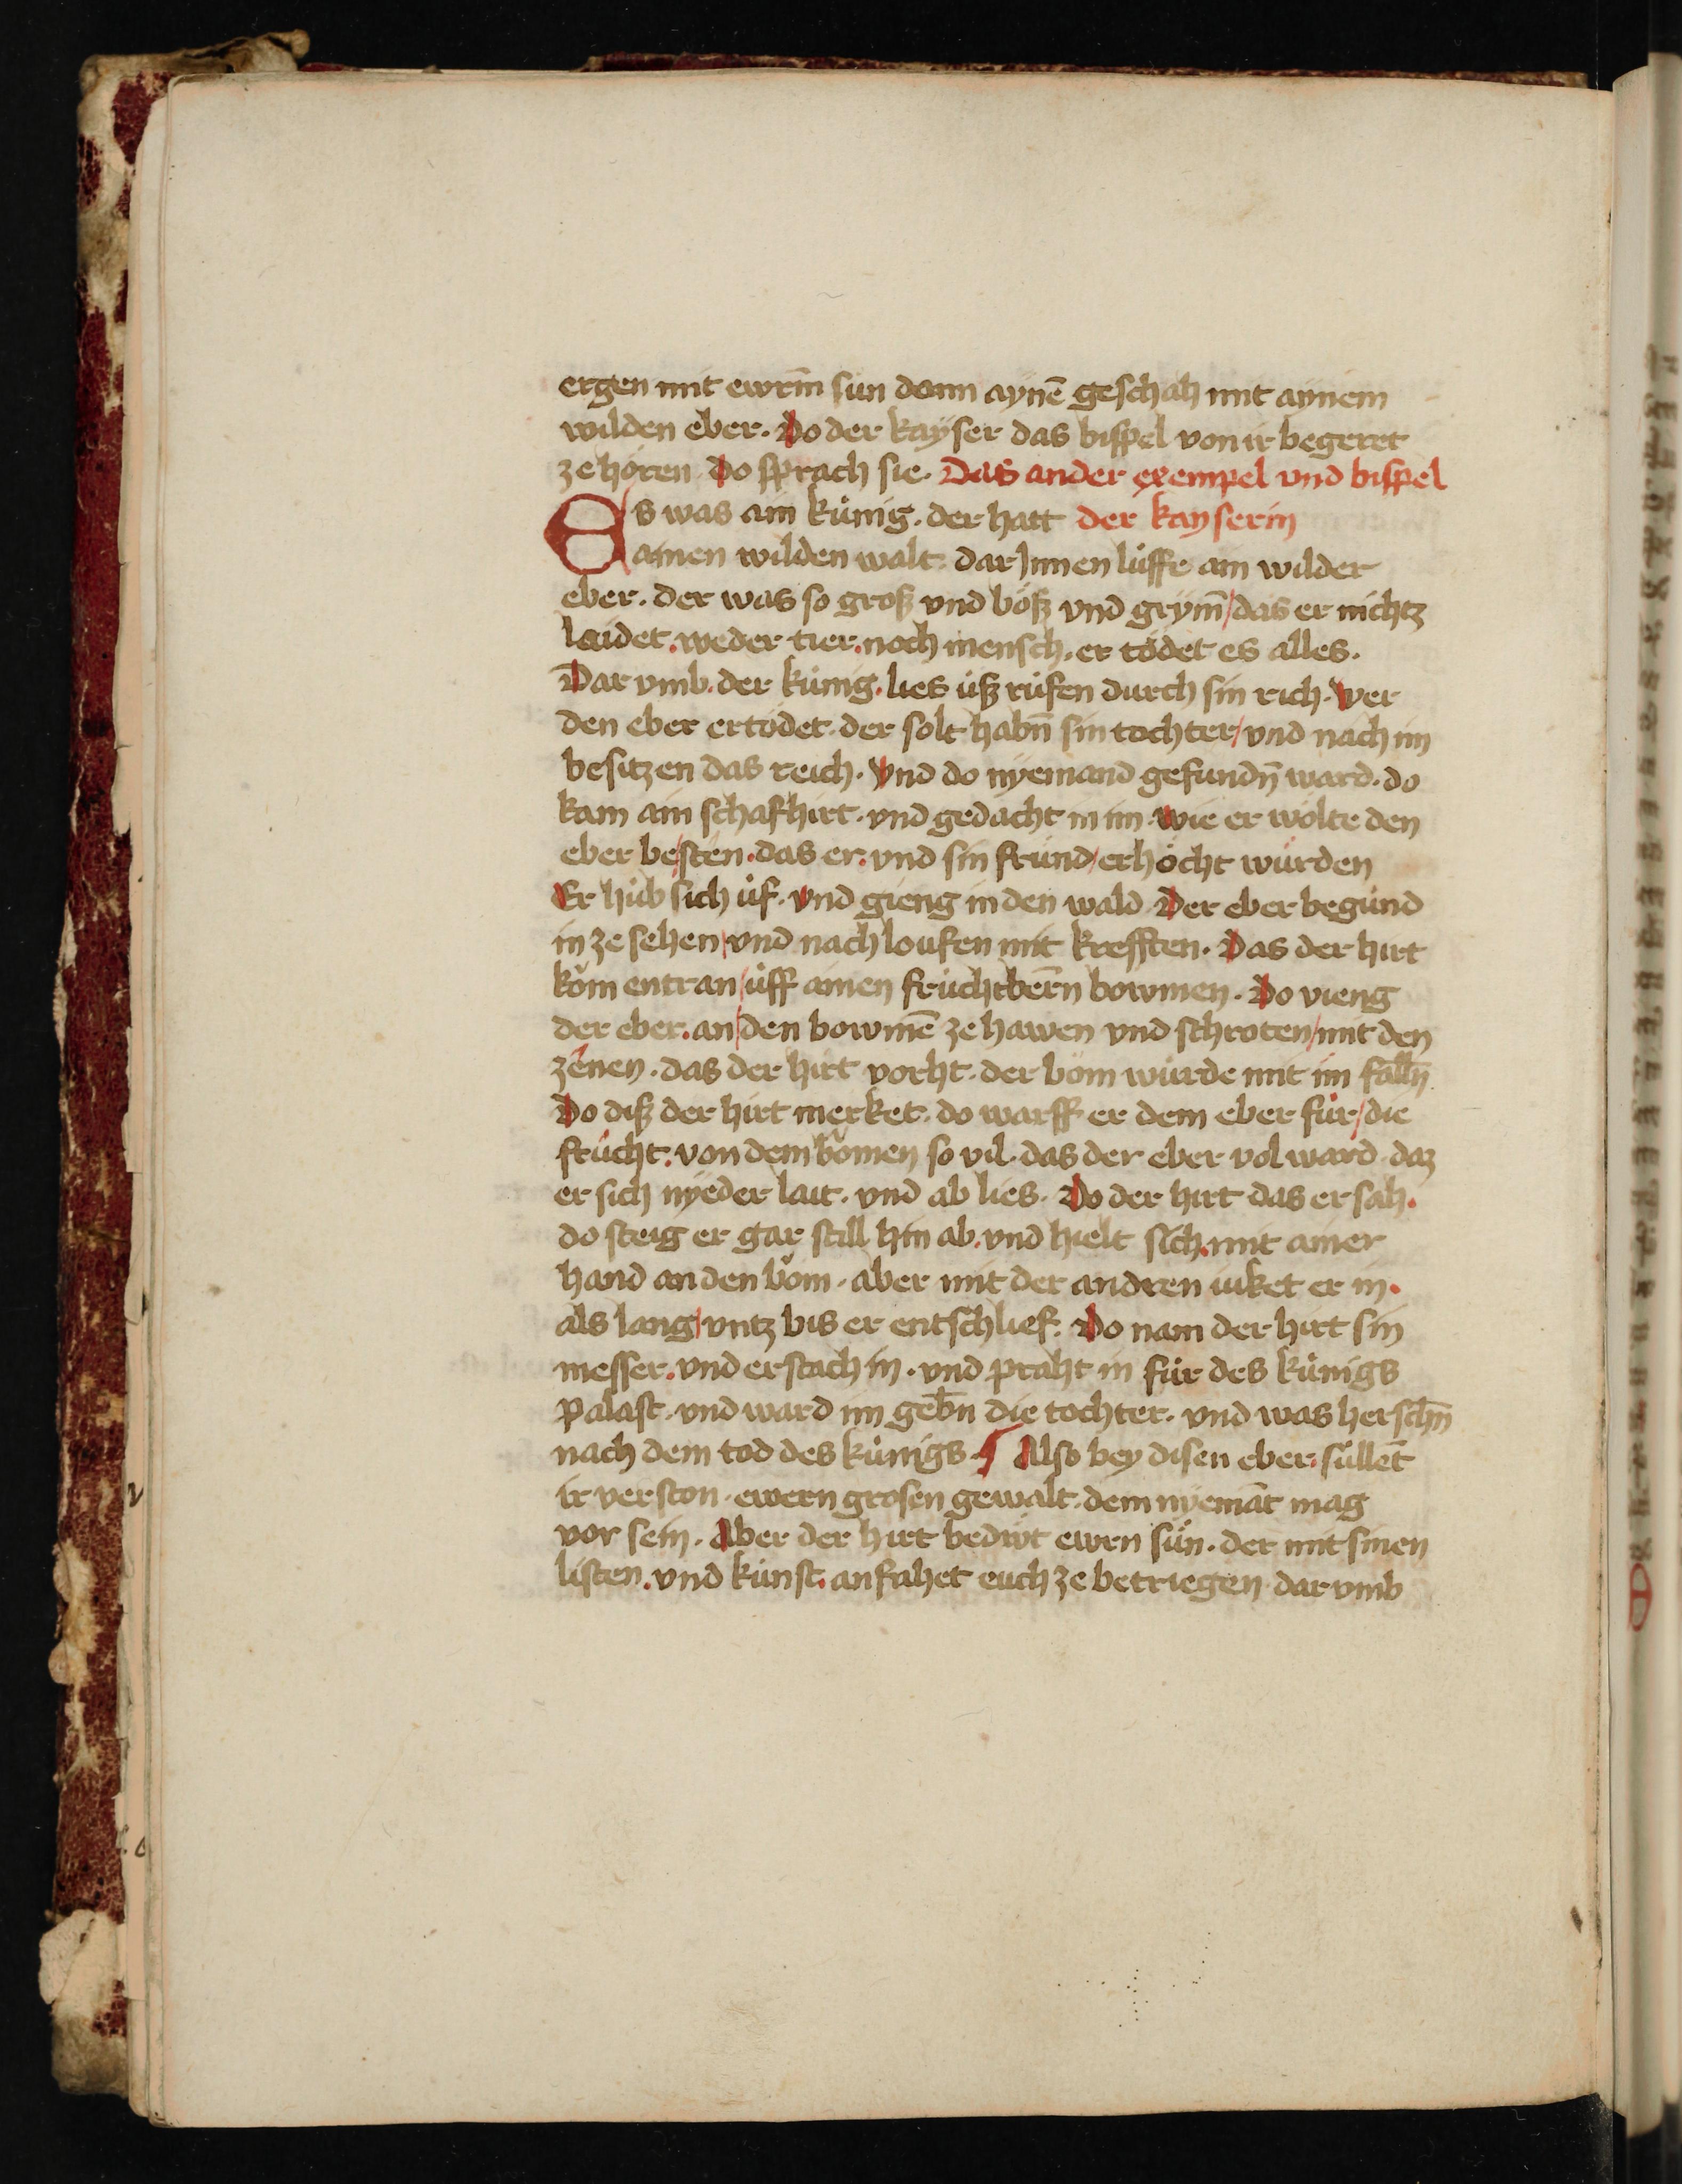 ergen mit ewrm̄ sun dann aynē geschah mit ainem
wilden eber. Do der kayser das bispel von ir begeret
ze hören Do sprach sie. Das ander exempel vnd bispel
Es was ain künig. der hatt der kayserin
ainen wilden walt. dar Jnnen lüffe ain wilder
eber. der was so groß vnd böß vnd grym̄/das er nichtz
laidet. weder tier. noch mensch. er tödet es alles.
Dar vmb. der künig. lies uß rüfen durch sin rich. Wer
den eber ertödet. der solt habn̄ sin tochter/vnd nach im
besitzen das reich. Vnd do nyemand gefundn̄ ward. do
kam ain schafhirt. vnd gedacht in im. wie er wolte den
eber besten. das er. vnd sin fründ/erhöcht würden
Er hüb sich uf. vnd gieng in den wald. Der eber begund
in ze sehen/vnd nach loufen mit krefften. Das der hirt
kom entran/uff ainen fruchtbern̄ bowmen. Do vieng
der eber. an/den bowmē ze hawen vnd schroten/mit den
zenen. das der hirt vorht. der bom würde mit im falln̄
Do diß der hirt merket. do warff er dem eber für/die
frücht. von dem bomen so vil. das der eber vol ward. daz
er sich nyeder lait. vnd ab lies. Do der hirt das ersah.
do steig er gar still hin ab. vnd hielt sich. mit ainer
hand an den bom. aber mit der andren iuket er in.
als lang/vntz bis er entschlief. Do nam der hirt sin
messer. vnd erstach in. vnd praht in für des künigs
palast. vnd ward im gebn̄ die tochter. vnd was herschn̄
nach dem tod des künigs. ¶ Also bey disen eber. süllet
ir verston. ewern grosen gewalt. dem nyemāt mag
vor sein. Aber der hirt bedüt ewrn sün. der mit sinen
listen. vnd künst. anfahet euch ze betriegen dar vmb